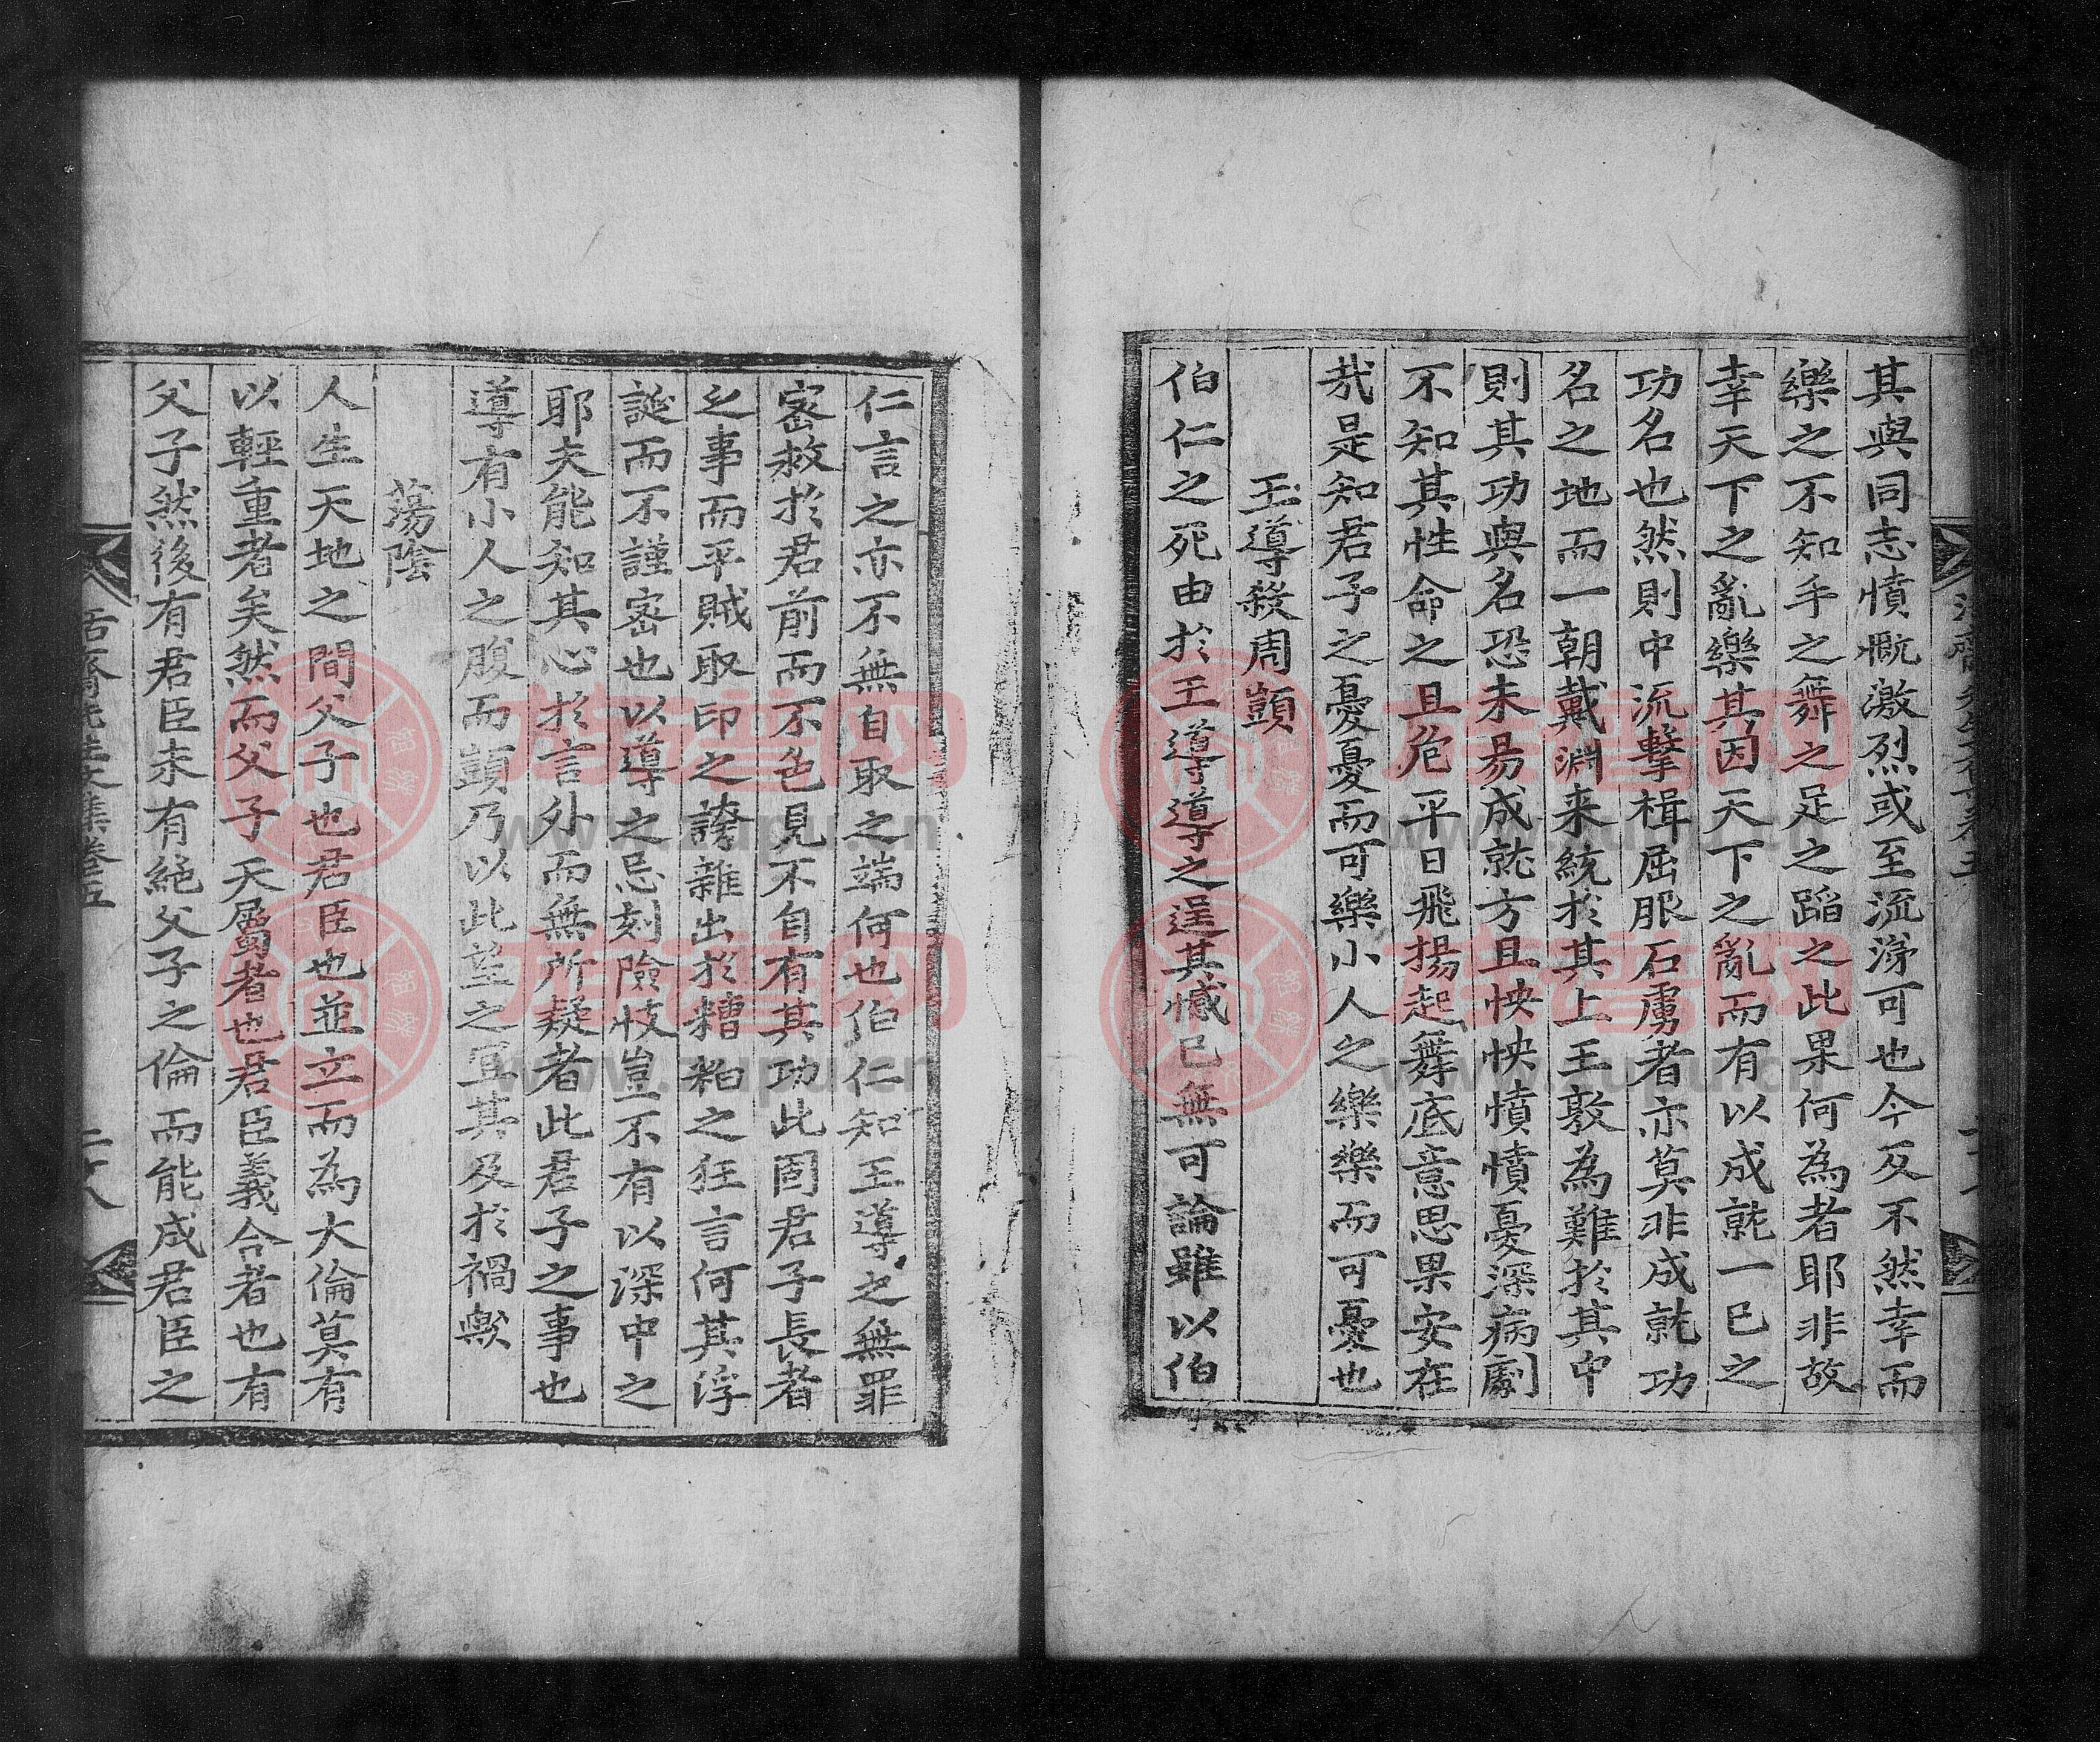 其與同志憤慨激烈或至流涕可也今反不然幸而
樂之不知手之舞之足之蹈之此果何為者耶非故
幸天下之亂樂其因天下之亂而有以成就一已之
功名也然則中流擊楫屈服石虜者亦莫非成就功
名之地而一朝戴淵来統於其上王敦為難於其中
則其功與名恐未易成就方且怏怏憤憤憂深病劇
不知其性命之且危平日飛揚起舞底意思果安在
㢤是知君子之憂憂而可樂小人之樂樂而可憂也
王導殺周顗
伯仁之死由於王導導之逞其憾已無可論雖以伯
仁言之亦不無自取之端何也伯仁知王導之無罪
密救於君前而不色見不自有其功此固君子長者
之事而平賊取印之謗雜出於糟粕之狂言何其浮
誕而不謹密也以導之忌刻險忮豈不有以深中之
耶夫能知其心於言外而無所疑者此君子之事也
導有小人之腹而顗乃以此望之宜其及於禍歟
蕩陰
人生天地之間父子也君臣也並立而為大倫莫有
以輕重者矣然而父子天屬者也君臣義合者也有
父子然後有君臣未有絕父子之倫而能成君臣之
活齋先生文集卷五